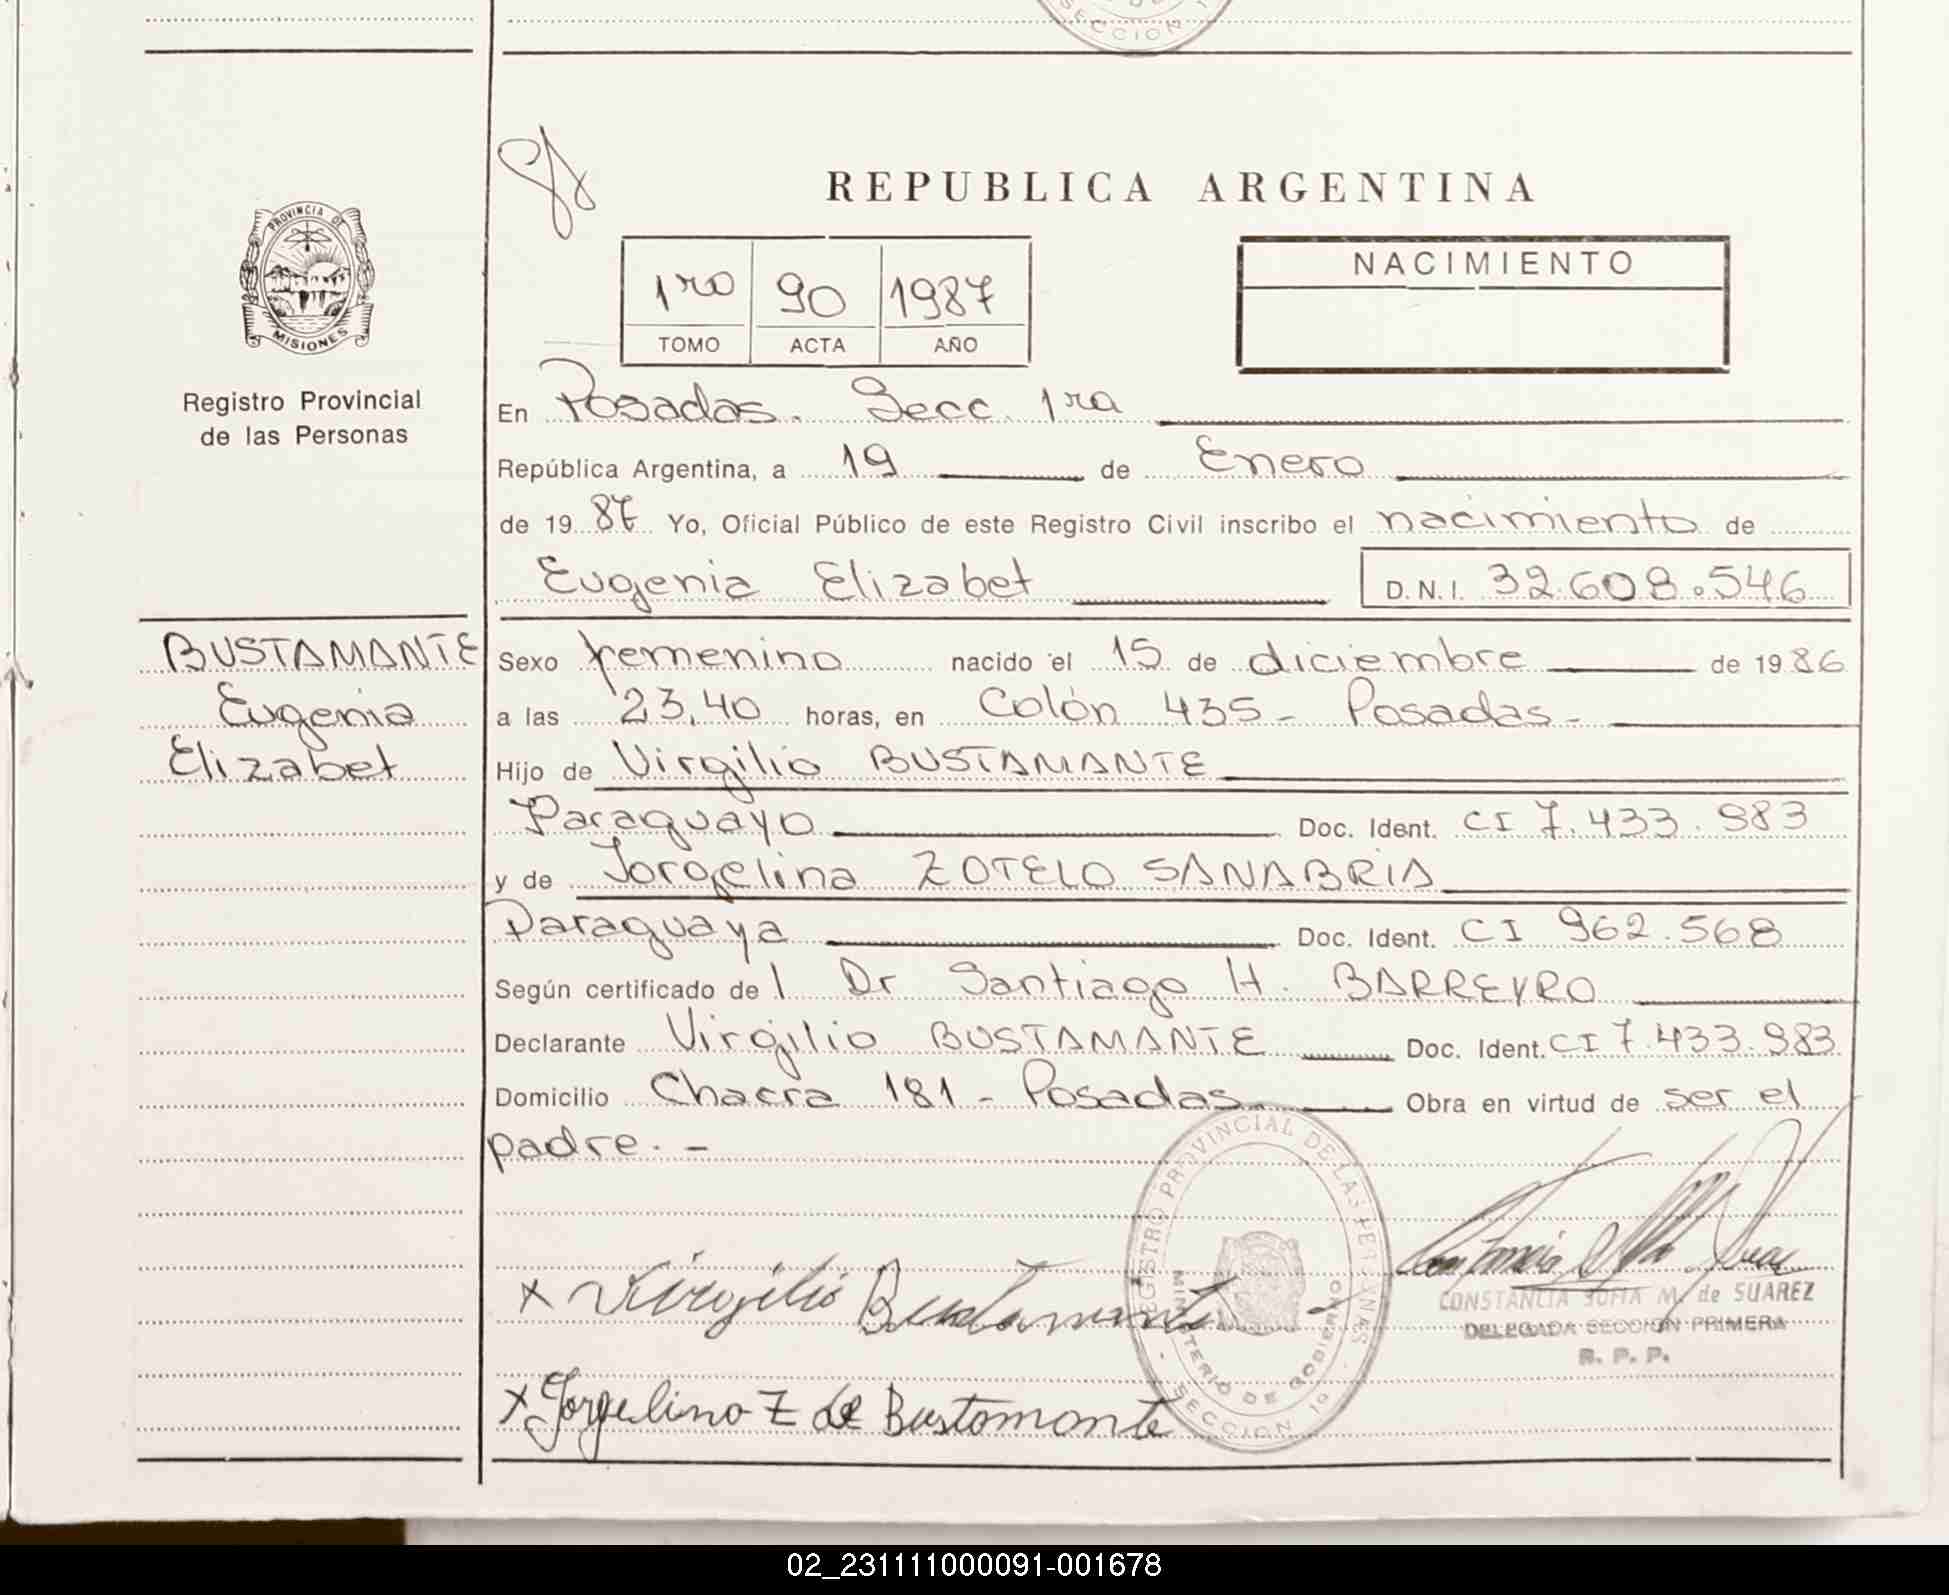 SECCION 1
REPUBLICA ARGENTINA
PROVINCIA DE
MISIONES
Registro Provincial
de las Personas
1ro 90 1987
TOMO ACTA AÑO
NACIMIENTO
En Posadas. Secc. 1ra
República Argentina, a 19 de Enero
de 1987 Yo, Oficial Público de este Registro Civil inscribo el nacimiento de
Eugenia Elizabet D.N.I. 32.608.546
BUSTAMANTE
Eugenia
Elizabet
Sexo femenino nacido el 15 de diciembre de 1986
a las 23,40 horas, en Colón 435- Posadas-
Hijo de Virgilio BUSTAMANTE
Paraguayo Doc. Ident. CI 7.433.983
y de Jorgelina ZOTELO SANABRIA
Paraguaya Doc. Ident. CI 962.568
Según certificado del Dr Santiago H. BARREYRO
Declarante Virgilio BUSTAMANTE Doc. Ident. CI 7.433.983
Domicilio Chacra 181 - Posadas. Obra en virtud de ser el
padre. -
REGISTRO PROVINCIAL DE LAS PERSONAS
MINISTERIO DE GOBIERNO
- SECCION 1º -
x Virgilio Bustamante
CONSTANCIA SOFIA M. de SUAREZ
DELEGADA SECCION PRIMERA
R. P. P.
x Jorgelina Z de Bustamante
02_231111000091-001678